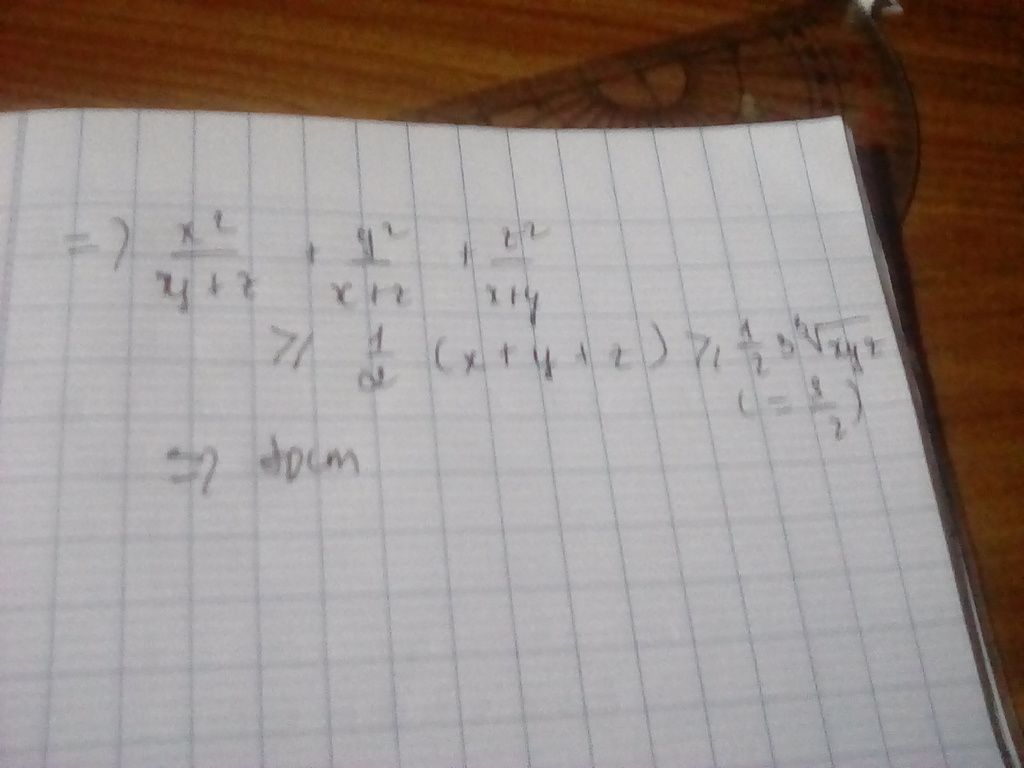 => x²/(xy+z) + y²/(x+z) + z²/(x+y)
≥ 1/2 (x+y+z) ≥ 1/2 3 ³√xyz
(= 3/2)
=> đpcm